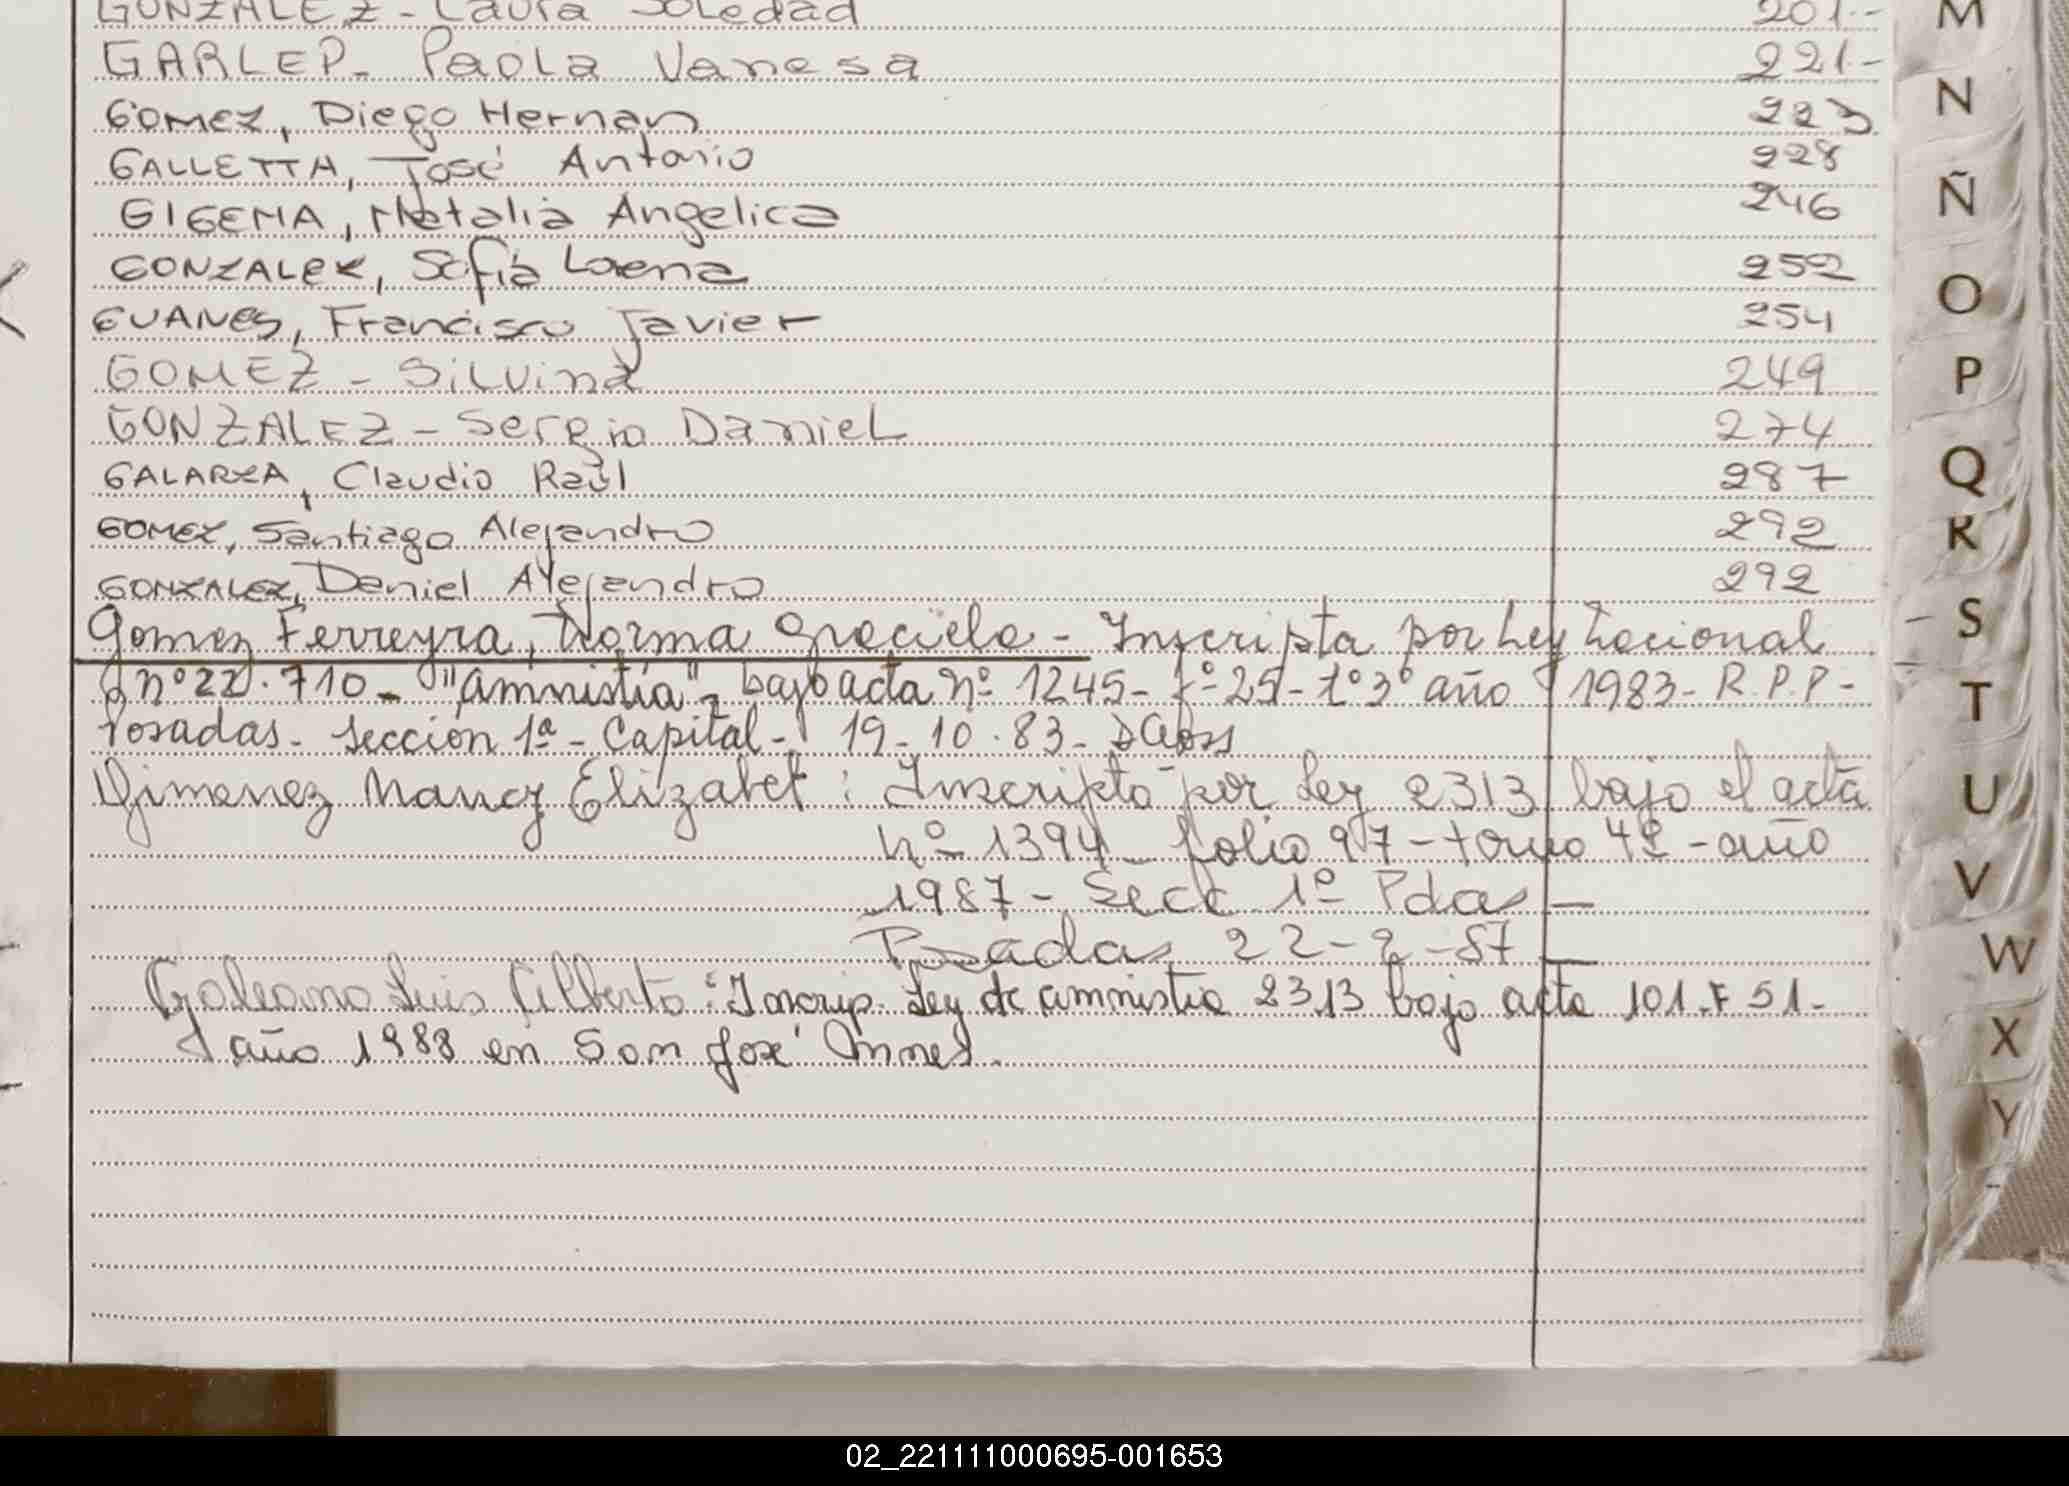 GONZALEZ - Laura Soledad 201.-
GARLEP - Paola Vanesa 221.-
GOMEZ, Diego Hernan 223
GALLETTA, José Antonio 228
GIGENA, Natalia Angelica 246
GONZALEZ, Sofia Lorena 252
GUANES, Francisco Javier 254
GOMEZ - Silvina 249
GONZALEZ - Sergio Daniel 274
GALARZA, Claudio Raúl 287
GOMEZ, Santiago Alejandro 292
GONZALEZ, Daniel Alejandro 292
Gomez Ferreyra, Norma Graciela - Inscripta por Ley Nacional
nº 22.710 - "amnistía" - bajo acta nº 1245 - fº 25 - tº 3º año 1983 - R.P.P -
Posadas - Sección 1ª - Capital - 19-10.83 -
Gimenez Nancy Elizabet : Inscripta por Ley 2313 bajo el acta
nº 1394 - folio 97 - tomo 4º - año
1987 - Secc 1º Pdas -
Posadas 22-2-87 -
Galeano Luis Alberto : Inscrip. Ley de amnistia 2313 bajo acta 101.F 51.-
año 1988 en San José Mnes.
M
N
Ñ
O
P
Q
R
S
T
U
V
W
X
Y
02_221111000695-001653